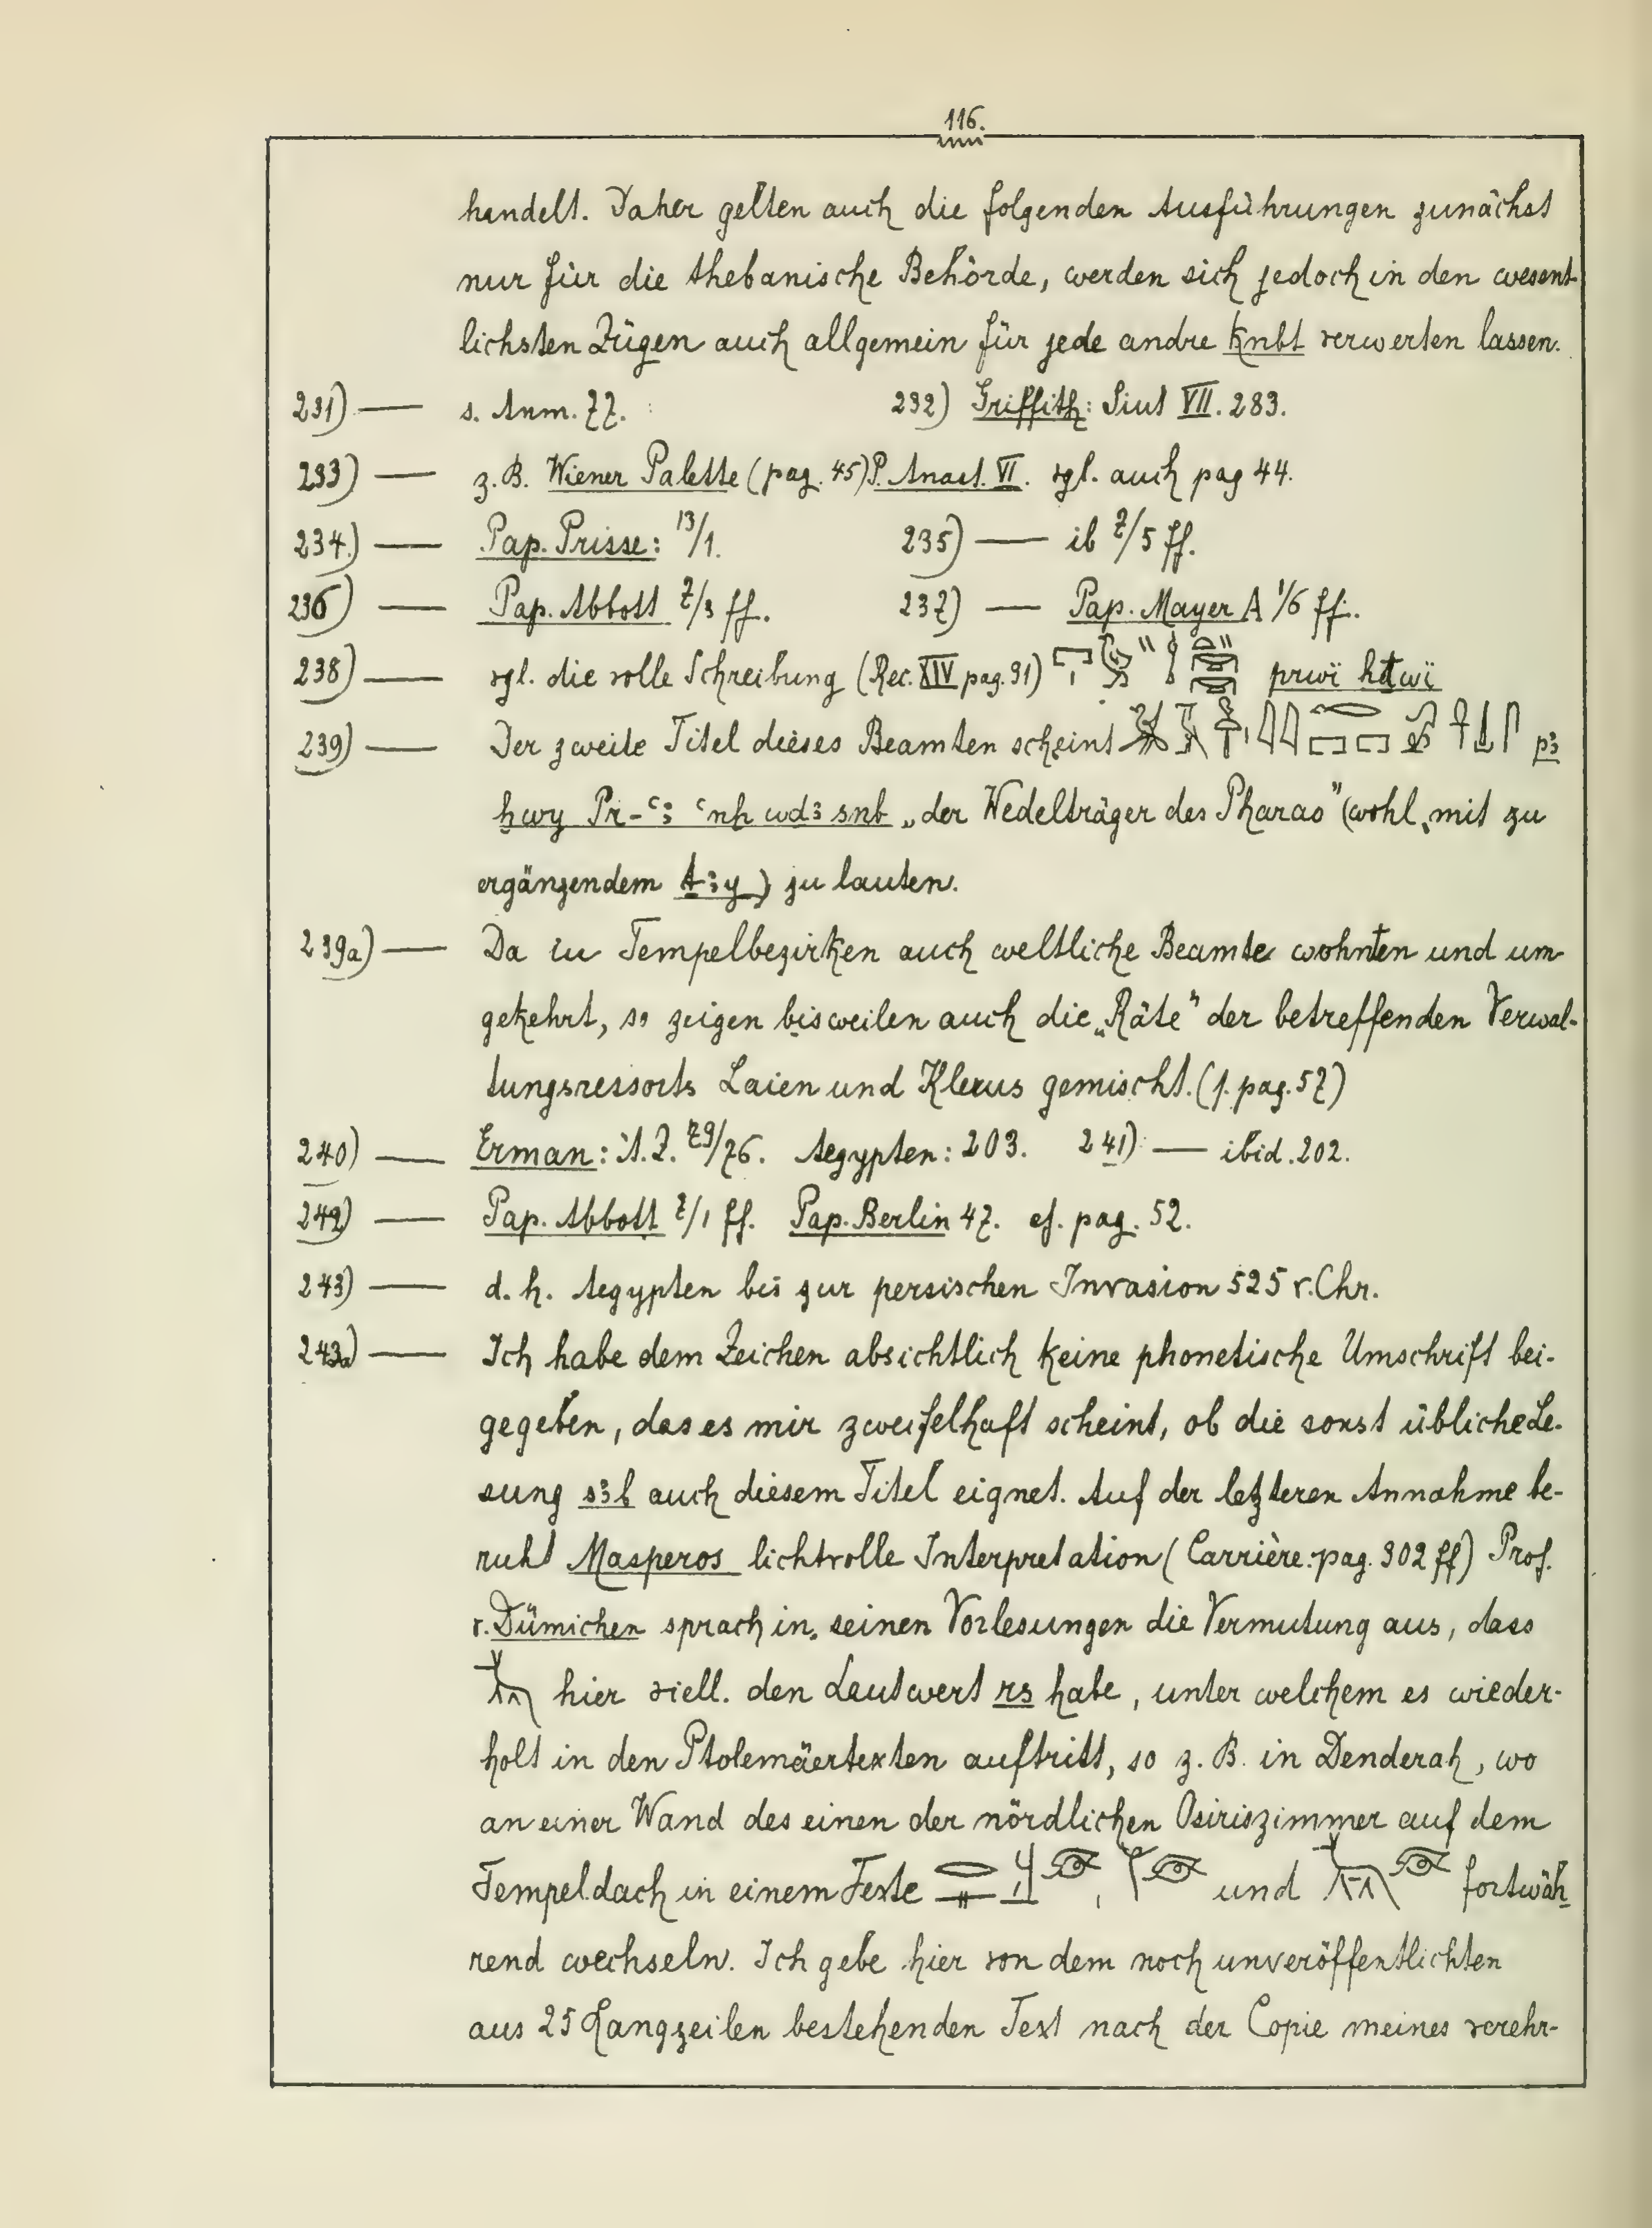 116.
handelt. Daher gelten auch die folgenden Ausführungen zunächst
nur für die thebanische Behörde, werden sich jedoch in den wesent-
lichsten Zügen auch allgemein für jede andre ḳnbt verwerten lassen.
231) — s. Anm. 77. 232) Griffith: Siut VII. 283.
233) — z. B. Wiener Palette (pag. 45) P. Anast. VI. vgl. auch pag 44.
234) — Pap. Prisse: 13/1. 235) — ib 7/5 ff.
236) — Pap. Abbott 7/3 ff. 237) — Pap. Mayer A 1/6 ff.
238) — vgl. die volle Schreibung (Rec. XIV pag. 31) prwï ḥḏwï
239) — Der zweite Titel dieses Beamten scheint pꜣ
ḫwy Pr-ꜥꜣ ꜥnḫ wḏꜣ snb „der Wedelträger des Pharao" (wohl mit zu
ergänzendem ṯꜣy) zu lauten.
239a) — Da in Tempelbezirken auch weltliche Beamte wohnten und um-
gekehrt, so zeigen bisweilen auch die „Räte" der betreffenden Verwal-
tungsressorts Laien und Klerus gemischt. (s. pag. 57)
240) — Erman: Ä.Z. 79/76. Aegypten: 203. 241) — ibid. 202.
242) — Pap. Abbott 7/1 ff. Pap. Berlin 47. cf. pag. 52.
243) — d. h. Aegypten bis zur persischen Invasion 525 v. Chr.
243a) — Ich habe dem Zeichen absichtlich keine phonetische Umschrift bei-
gegeben, das es mir zweifelhaft scheint, ob die sonst übliche Le-
sung sꜣb auch diesem Titel eignet. Auf der letzteren Annahme be-
ruht Masperos lichtvolle Interpretation (Carrière: pag. 302 ff) Prof.
v. Dümichen sprach in seinen Vorlesungen die Vermutung aus, dass
hier viell. den Lautwert rs habe, unter welchem es wieder-
holt in den Ptolemäertexten auftritt, so z. B. in Denderah, wo
an einer Wand des einen der nördlichen Osiriszimmer auf dem
Tempeldach in einem Texte und fortwäh
rend wechseln. Ich gebe hier von dem noch unveröffentlichten
aus 25 Langzeilen bestehenden Text nach der Copie meines verehr-